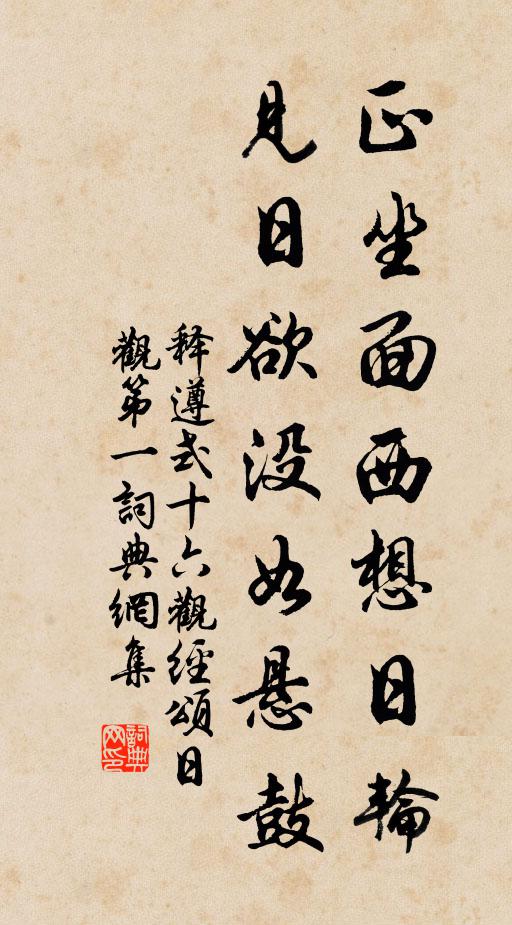 正坐面西想日輪
見日欲没如悬鼓
释遵式十六觀經頌日
觀第一詞典網集
詞典网印